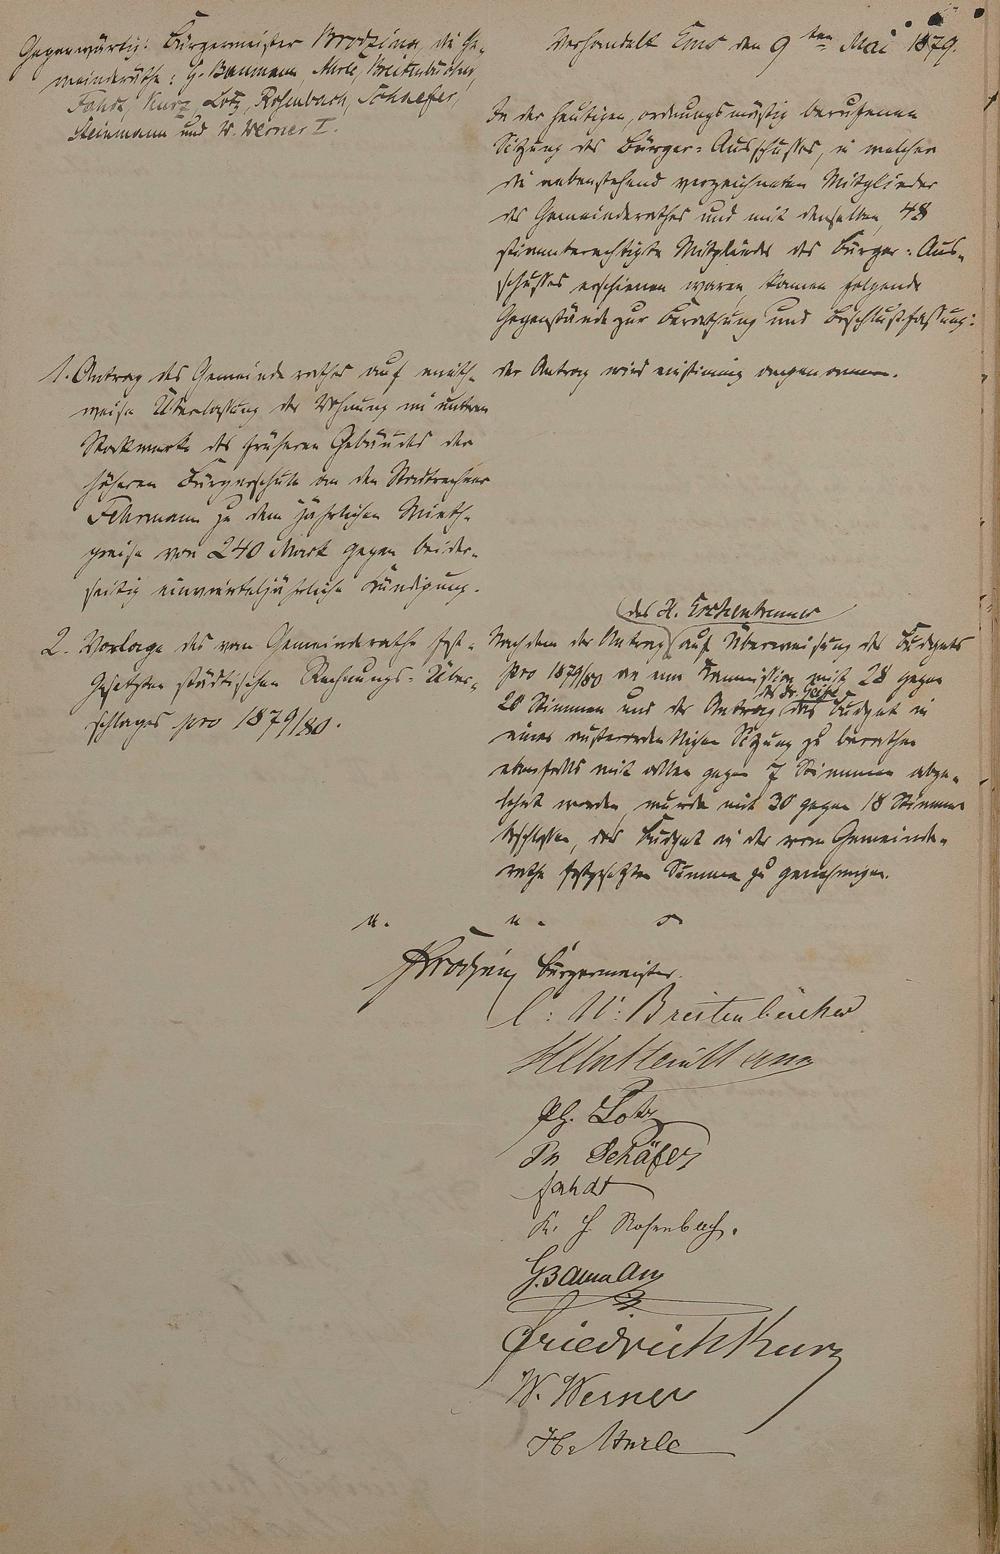 Gegenwärtig: Bürgermeister Brodzina, die Ge-
meinderäthe: G. Baumann, Merle, Breitenbücher,
Fahdt, Kurz, Lotz, Rosenbach, Schaefer,
Steinmann und W. Werner I.
Verhandelt Ems den 9ten Mai 1879.
In der heutigen, ordnungsmäßig berufenen
Sitzung des Bürger-Ausschusses, in welcher
die nebenstehend verzeichneten Mitglieder
des Gemeinderathes und mit denselben 48
stimmberechtigte Mitglieder des Bürger-Aus-
schusses erschienen waren, kamen folgende
Gegenstände zur Berathung und Beschlußfassung:
1. Antrag des Gemeinderathes auf mieth-
weise Überlassung der Wohnung im unteren
Stockwerke des früheren Gebäudes der
höheren Bürgerschule an den Stadtrechner
Fehrmann zu dem jährlichen Mieth-
preise von 240 Mark gegen beider-
seitig einvierteljährliche Kündigung.
der Antrag wird einstimmig angenommen.
2. Vorlage des vom Gemeinderathe fest-
gesetzten städtischen Rechnungs-Über-
schlages pro 1879/80.
des H.
Nachdem der Antrag auf Überweisung des Budgets
pro 1879/80 an eine Commission mit 28 gegen
des Dr.
20 Stimmen und der Antrag das Budget in
einer außerordentlichen Sitzung zu berathen
ebenfalls mit allen gegen 7 Stimmen abge-
lehnt worden, wurde mit 30 gegen 18 Stimmen
beschlossen, das Budget in der vom Gemeinde-
rathe festgesetzten Summe zu genehmigen.
a. u. s.
Brodzina Bürgermeister.
C: W: Breitenbücher
Steinmann
Ph. Lotz
Ph Schäfer
Fahdt
K. H Rosenbach.
G. Baumann
Friedrich Kurz
W. Werner
H. Merle